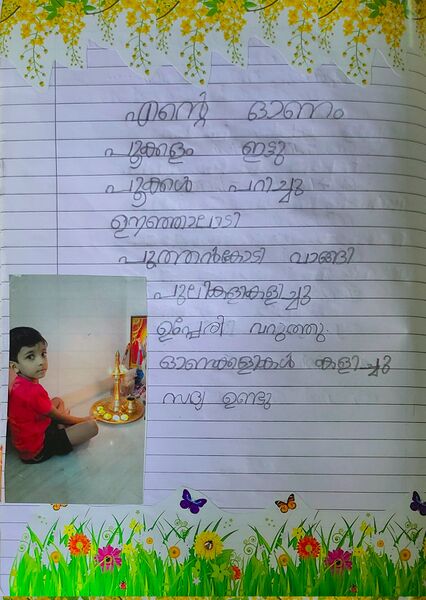 എന്റെ ഓണം
പൂക്കളം ഇട്ടു
പൂക്കൾ പറിച്ചു
ഊഞ്ഞാലാടി
പുത്തൻകോടി വാങ്ങി
പുലികളികളിച്ചു
ഉപ്പേരി വറുത്തു.
ഓണക്കളികൾ കളിച്ചു
സദ്യ ഉണ്ടു